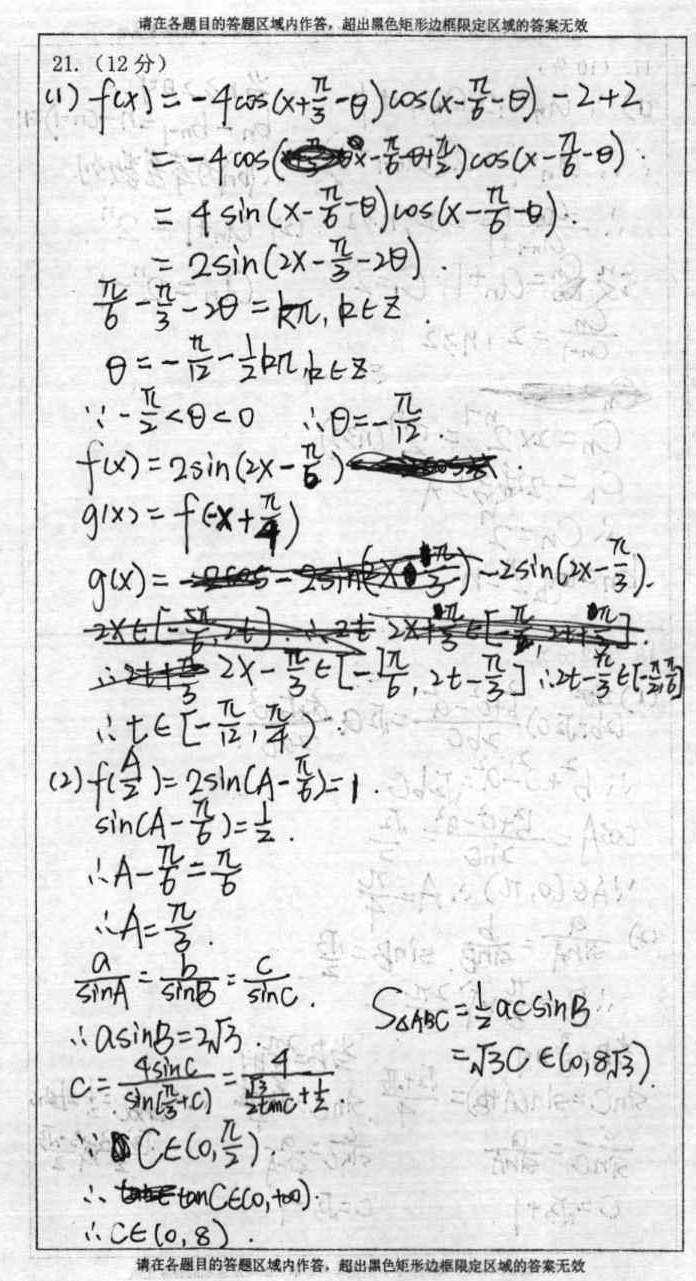 请在各题目的答题区域内作答，超出黑色矩形边框限定区域的答案无效
21.（12分）
(1) f(x) = -4cos(x+π/3-θ)cos(x-π/6-θ) -2+2
= -4cos(x-π/6-θ+π/2)cos(x-π/6-θ).
= 4sin(x-π/6-θ)cos(x-π/6-θ).
= 2sin(2x-π/3-2θ).
π/6-π/3-2θ=kπ, k∈Z.
θ=-π/12-1/2kπ, k∈Z
∵-π/2<θ<0 ∴θ=-π/12.
f(x)=2sin(2x-π/6).
g(x)=f(-x+π/4)
g(x)= -2sin(2x-π/3).
2x-π/3∈[-7π/6, 2t-π/3] ∴2t-π/3∈[-π/2,π/6]
∴t∈[-π/12,π/4).
(2) f(A/2)=2sin(A-π/6)=1.
sin(A-π/6)=1/2.
∴A-π/6=π/6
∴A=π/3.
a/sinA=b/sinB=c/sinC.
∴asinB=2√3.
c=4sinC/sin(π/3+C)=4/(√3/2tanC+1/2).
∵C∈(0,π/2).
∴tanC∈(0,+∞).
∴C∈(0,8).
S△ABC=1/2acsinB
=√3C∈(0,8√3).
请在各题目的答题区域内作答，超出黑色矩形边框限定区域的答案无效